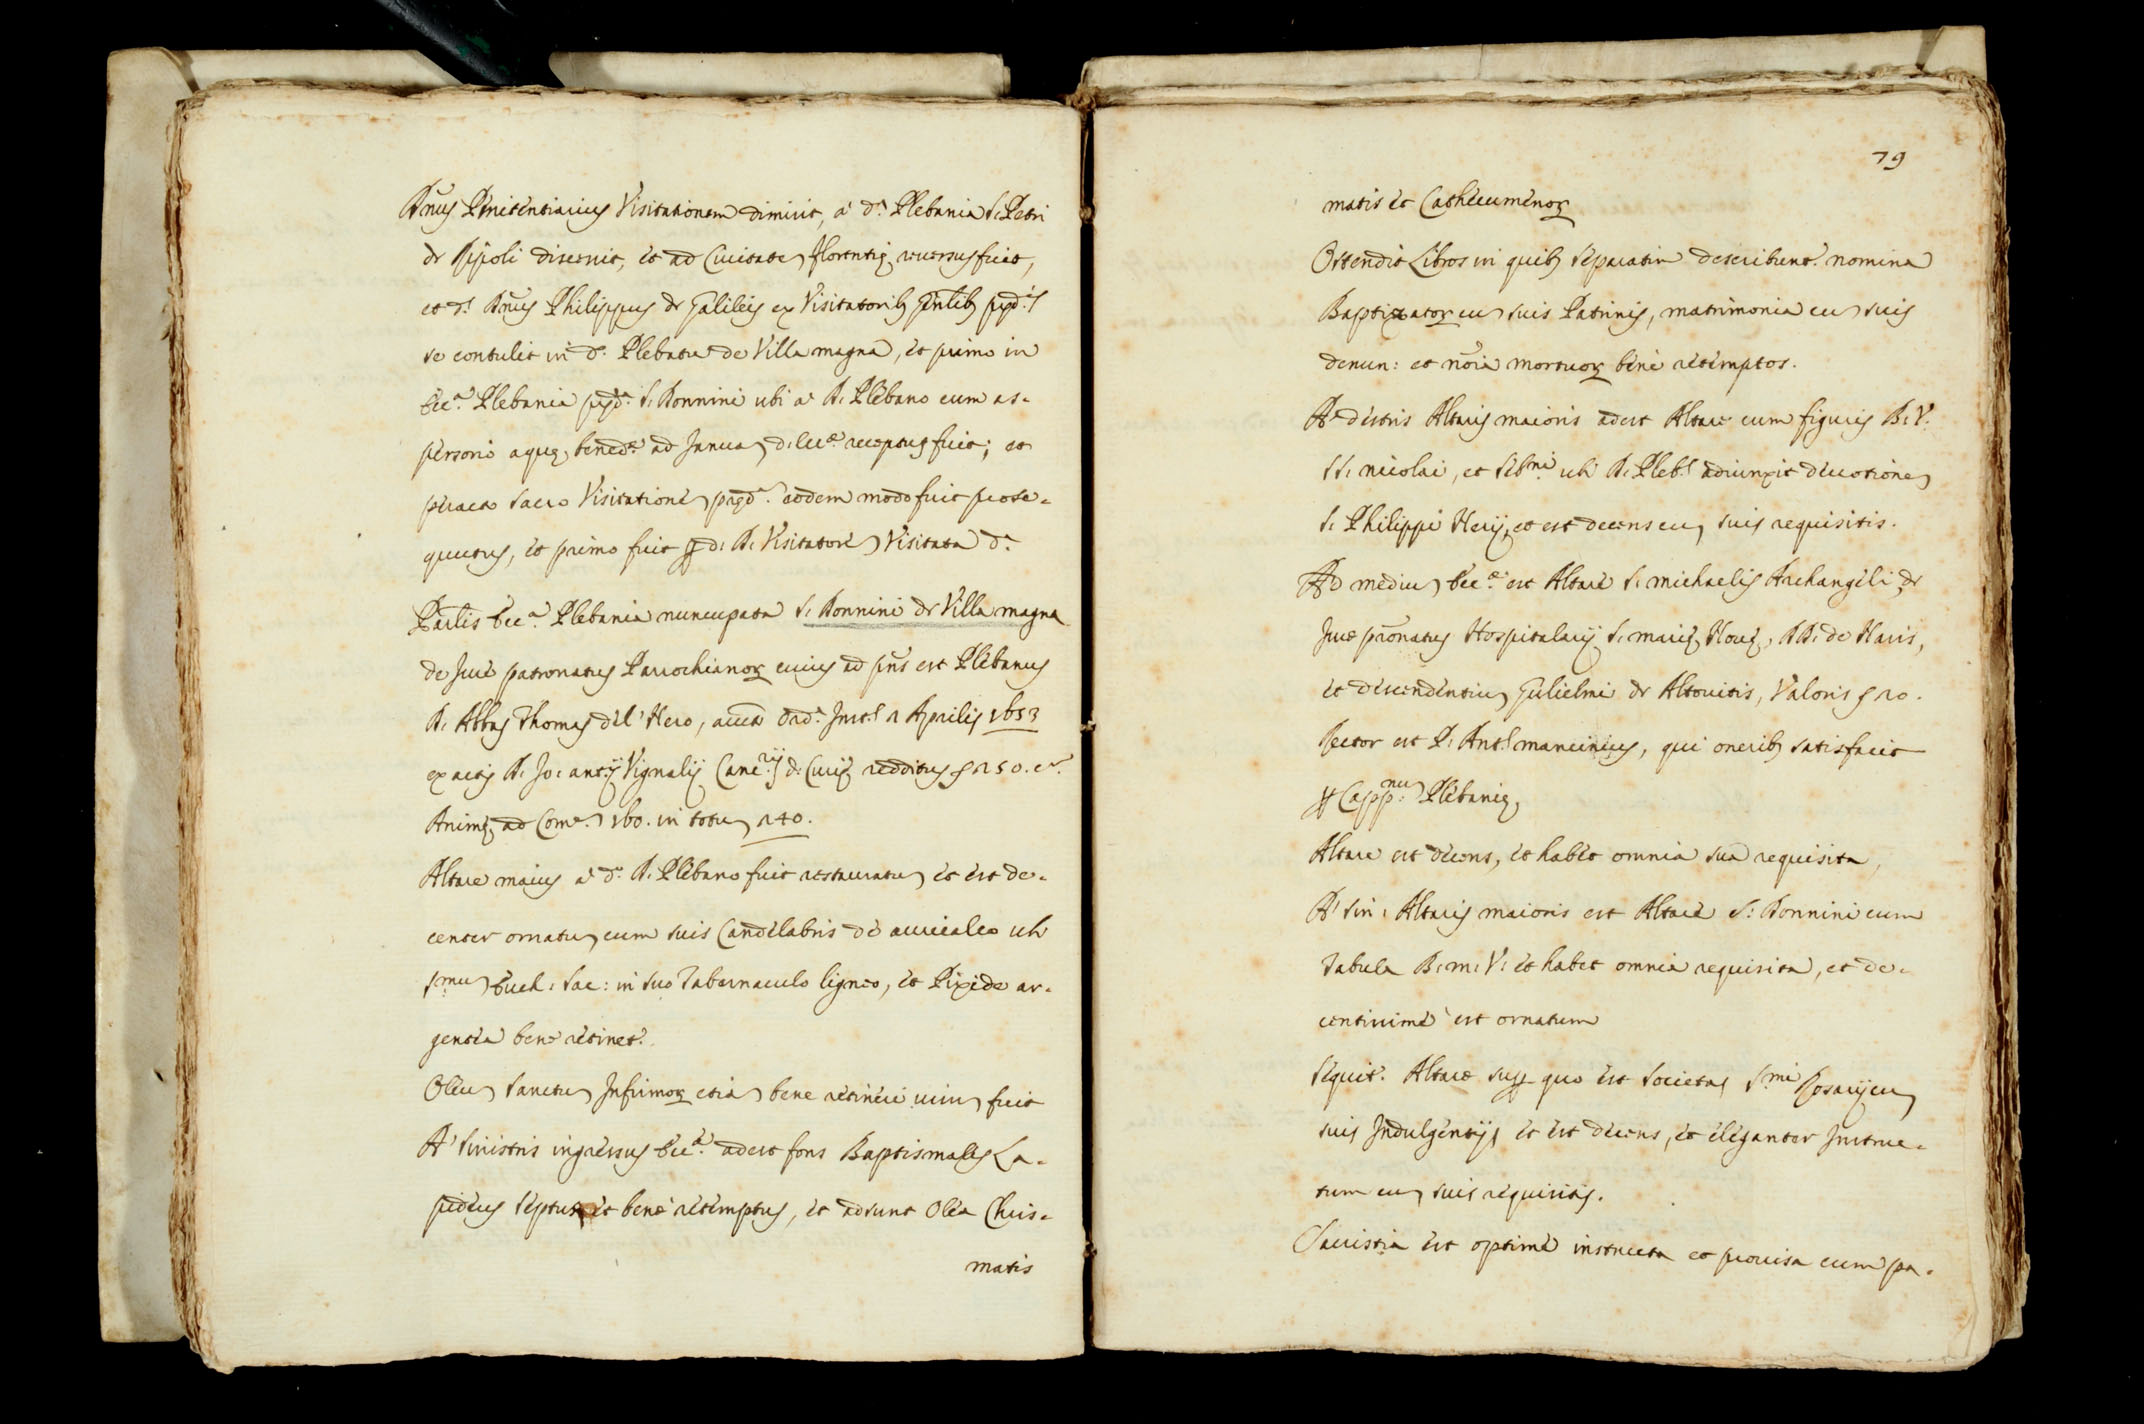 Dnus Penitentiarius Visitationem dimisit, a d.ª Plebania S. Petri
de Ripoli discessit, et ad Ciuitate Florentię reuersus fuit,
et d.s Dnus Philippus de Galileis ex Visitatorib gnlib
se contulit in d.º Plebatu de Villa magna, et primo in
Ecc.ª Plebania S. Donnini ubi a D. Plebano cum as-
persorio aquę bened.ę ad Janua d. Ecc.ę receptus fuit; et
peracto Sacro Visitatione eodem modo fuit prose-
quutus, et primo fuit p d. D. Visitatore Visitata d.ª
Parlis Ecc.ª Plebania nuncupata S. Donnini de Villa magna
de Jure patronatus Parrochianor cuius ad pns est Plebanus
D. Abbas Thomas del' Nero, Aprilis 1653
ex actis D. Jo: Antij Vignalij Canc.rij d. Curię redditus 250.
Animę ad Com.e 160. in totu 240.
Altare maius a d.º D. Plebano fuit restauratu et est de-
center ornatu cum suis Candelabris de auricalco ubi
S.mu Euch: Sac: in suo Tabernaculo ligneo, et Pixide ar-
gentea bene retinet.
Oleu Sanctu Infirmor etia bene retineri uisu fuit
A' sinistris ingressus Ecc.ę adest fons Baptismalis La-
pideus septus et bene retemptus, et adsunt Olea Chris-
matis
79
matis et Cathecumenor
Ostendit Libros in quib separatim describunt. nomina
Baptizator cu suis Patrinis, matrimonia cu suis
denun: et noia mortuor bene retemptos.
A dextris Altaris maioris adest Altare cum figuris B. V.
SS. Nicolai, et Seb.ni ubi D. Pleb.s adiunxit deuotione
S. Philippi Nerij, et est decens cu suis requisitis.
Ad mediu Ecc.ę est Altare S. Michaelis Archangeli, de
Jure pronatus Hospitalarij S. Marię Nouę, DD. de Naris,
et descendentiu Gulielmi de Altouitis, Valoris 20.
Rector est D. Ant.s Mancinius, qui onerib satisfacit
p Capp.nu Plebanię
Altare est decens, et habet omnia sua requisita,
A' sin: Altaris maioris est Altare S: Donnini cum
Tabula B: M: V: et habet omnia requisita, et de-
centissime est ornatum
Sequit. Altare sup quo est Societas S.mi Rosarij cu
suis Indulgentijs et est decens, et eleganter Instruc-
tum cu suis requisitis.
Sacristia est optime instructa et prouisa cum pa-